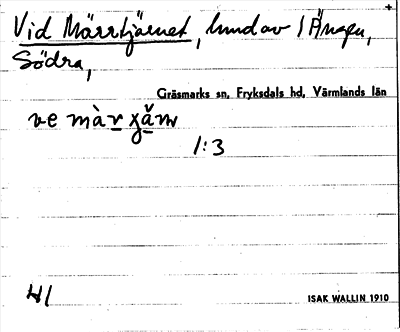 Vid Märrtjärnet, hmd av 1 Ängen,
Södra,
Gräsmarks sn, Fryksdals hd, Värmlands län
ve
1:3
41
ISAK WALLIN 1910